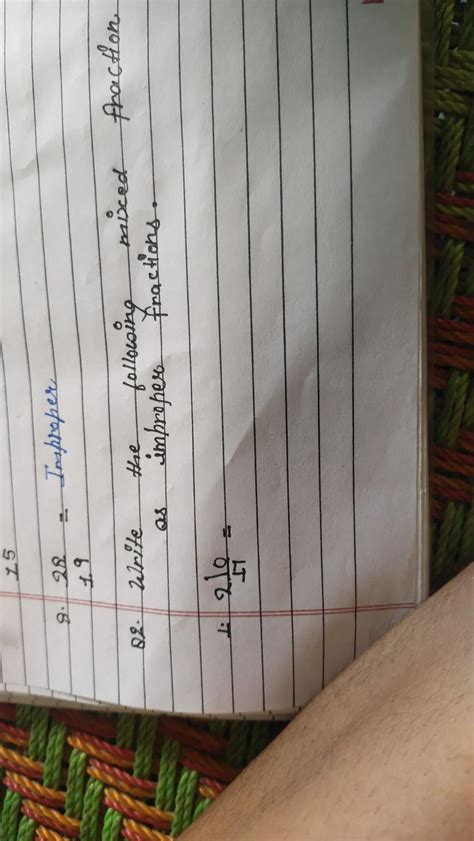 15
8. 28 = Improper
19
Q2. Write the following mixed fraction
as improper fractions.
1. 2 10 =
17